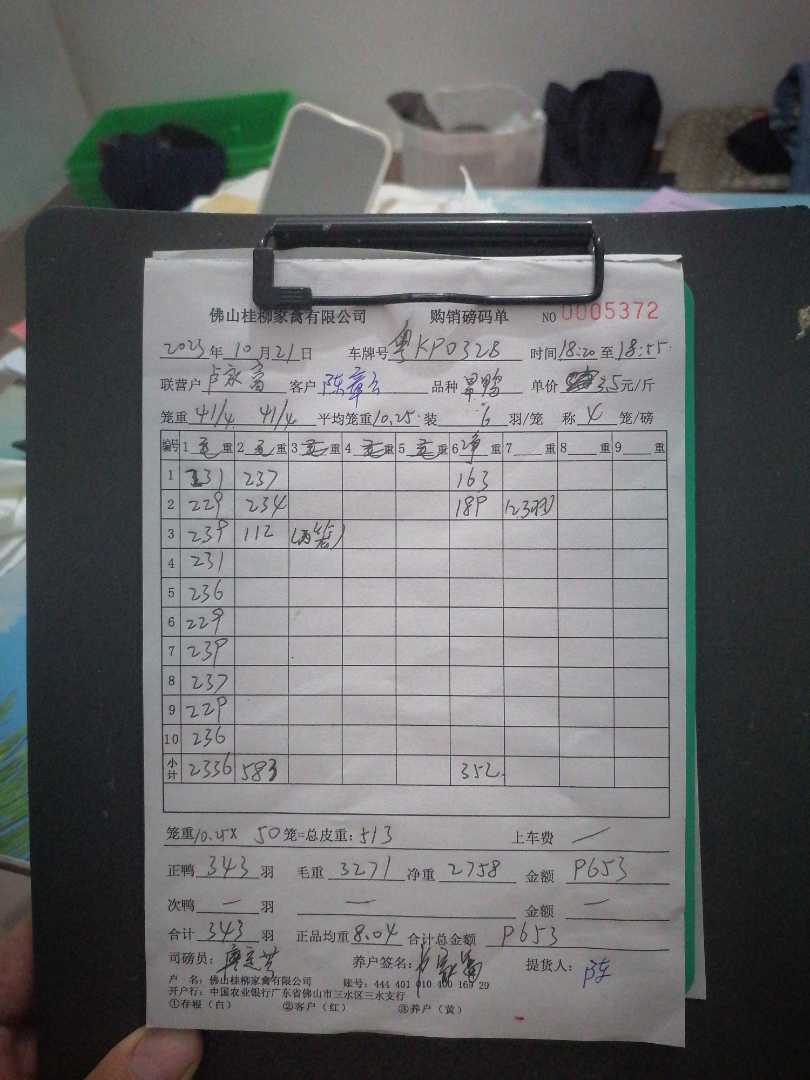 佛山桂柳家禽有限公司 购销磅码单 NO 0005372
2023年10月21日 车牌号 粤KP0328 时间18:20至18:55
联营户 卢家富 客户 陈章云 品种 单价 3.5元/斤
笼重 41/4 41/4 平均笼重10.25 装 6 羽/笼 称 4 笼/磅
编号 1 毛重 2 毛重 3 毛重 4 毛重 5 毛重 6 净重 7 重 8 重 9 重
1 231 237 163
2 229 234 189 123羽
3 239 112 (两笼)
4 231
5 236
6 229
7 239
8 237
9 229
10 236
小计 2336 583 352
笼重10.25× 50笼=总皮重:513 上车费 /
正鸭 343 羽 毛重 3271 净重 2758 金额 9653
次鸭 — 羽 — 金额 —
合计 343 羽 正品均重8.04 合计总金额 9653
司磅员: 养户签名: 卢家富 提货人: 陈
户 名: 佛山桂柳家禽有限公司 账号: 444 401 010 400 169 29
开户行: 中国农业银行广东省佛山市三水区三水支行
①存根(白) ②客户(红) ③养户(黄)